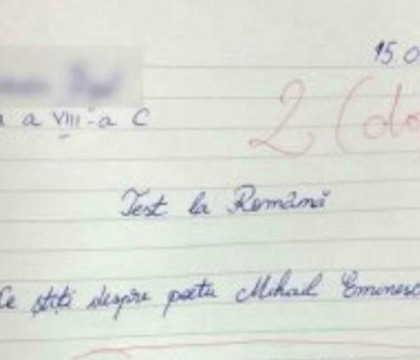 15.0
a VIII-a C
2 (do
Test la Română
Ce știți despre poetu Mihail Eminesc